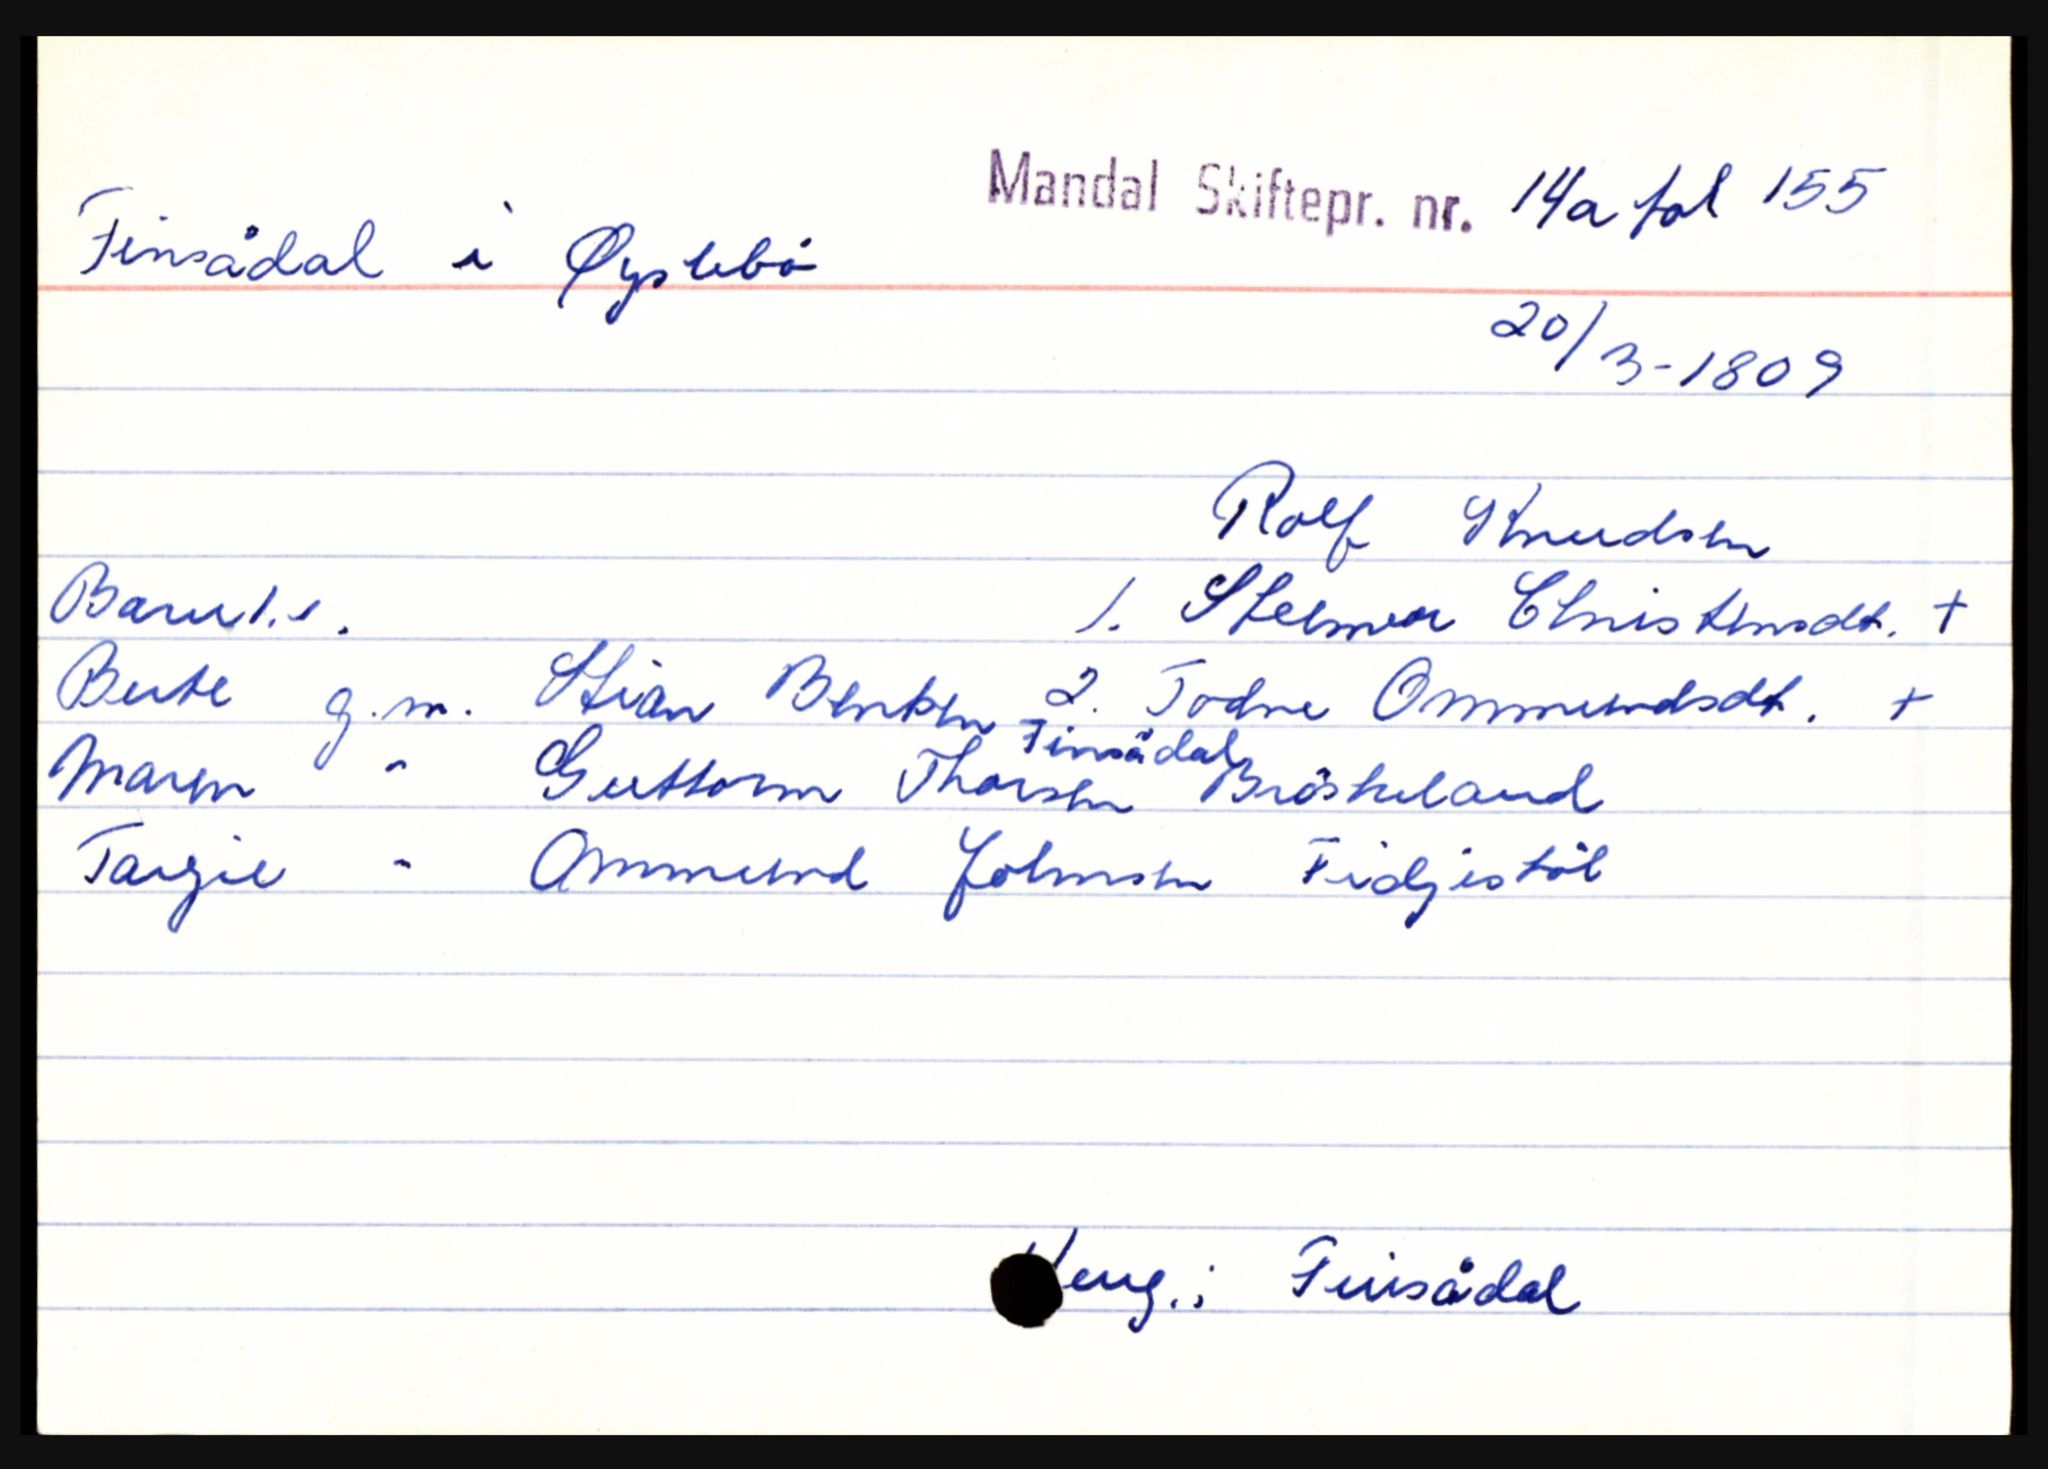 Mandal Skiftepr. nr. 14a fol 155
Finsådal i Øyslebö
20/3-1809
Rolf Knudsen
Barn 1.
1. Stelmor Christensdt. +
Berte g.m. Stian Bentsen Finsådal
2. Todne Ommundsdt. +
Maren " Guttorm Thorsen Bröskeland
Targie " Ommund Johnsen Fidjestöl
Heng.: Finsådal